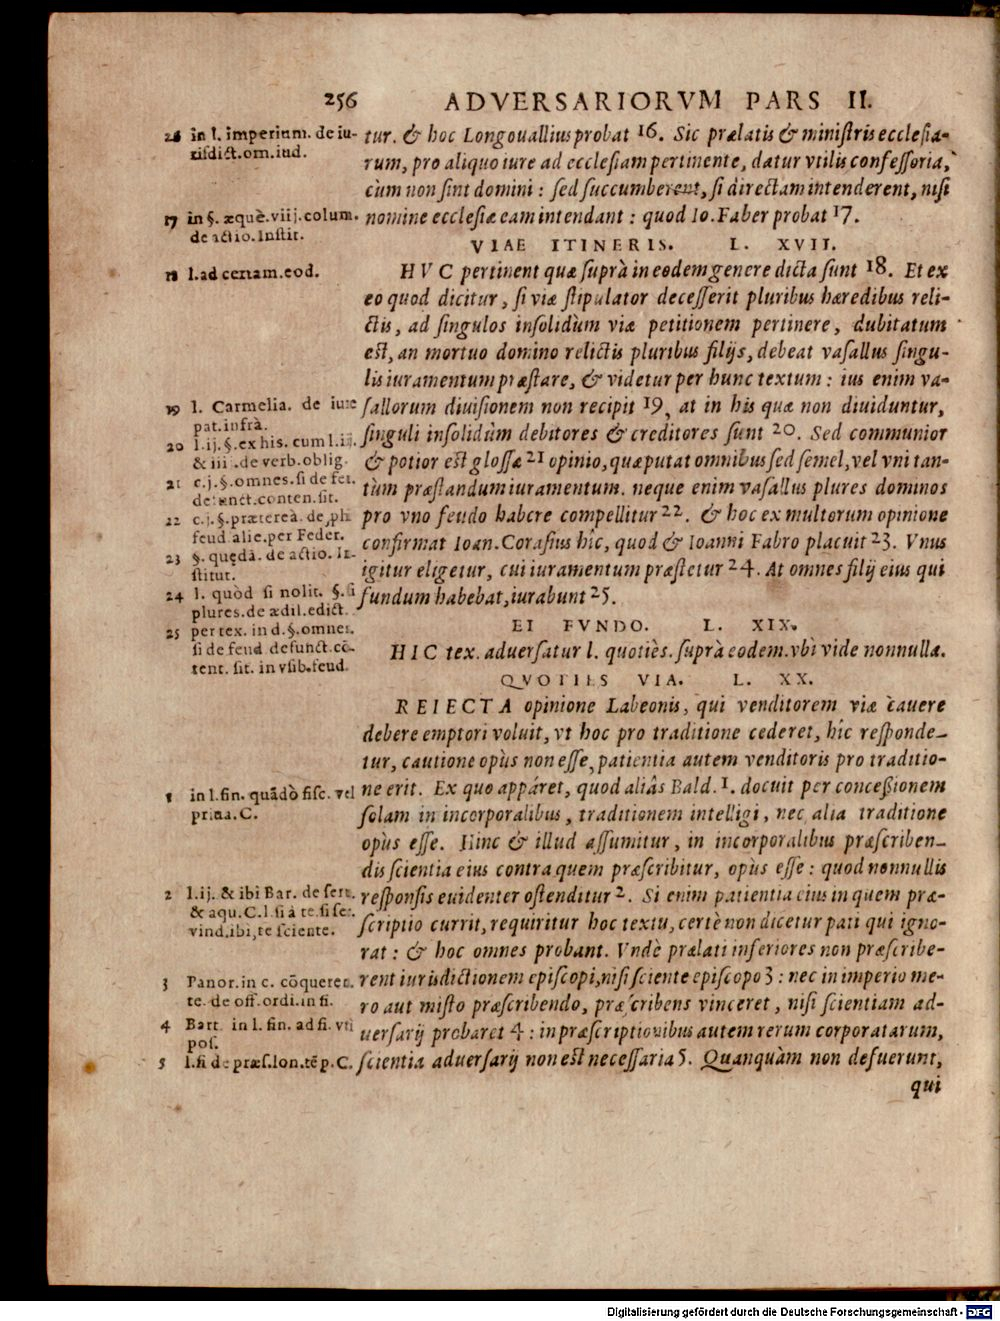 256 ADVERSARIORVM PARS II.
tur. & hoc Longouallius probat 16. Sic prælatis & ministris ecclesia-
rum, pro aliquo iure ad ecclesiam pertinente, datur vtilis confessoria,
cùm non sint domini : sed succumberent, si directam intenderent, nisi
nomine ecclesiæ eam intendant : quod Io. Faber probat 17.
VIAE ITINERIS. L. XVII.
HVC pertinent quæ suprà in eodem genere dicta sunt 18. Et ex
eo quod dicitur, si viæ stipulator decesserit pluribus hæredibus reli-
ctis, ad singulos insolidùm viæ petitionem pertinere, dubitatum
est, an mortuo domino relictis pluribus filijs, debeat vasallus singu-
lis iuramentum præstare, & videtur per hunc textum : ius enim va-
sallorum diuisionem non recipit 19, at in his quæ non diuiduntur,
singuli insolidùm debitores & creditores sunt 20. Sed communior
& potior est glossæ 21 opinio, quæ putat omnibus sed semel, vel vni tan-
tùm præstandum iuramentum. neque enim vasallus plures dominos
pro vno feudo habere compellitur 22. & hoc ex multorum opinione
confirmat Ioan. Corasius hîc, quod & Ioanni Fabro placuit 23. Vnus
igitur eligetur, cui iuramentum præstetur 24. At omnes filij eius qui
fundum habebat, iurabunt 25.
EI FVNDO. L. XIX.
HIC tex. aduersatur l. quotiès. suprà eodem. vbi vide nonnulla.
QVOTIES VIA. L. XX.
REIECTA opinione Labeonis, qui venditorem viæ cauere
debere emptori voluit, vt hoc pro traditione cederet, hîc responde-
tur, cautione opùs non esse, patientia autem venditoris pro traditio-
ne erit. Ex quo appáret, quod aliâs Bald. 1. docuit per concessionem
solam in incorporalibus, traditionem intelligi, nec alia traditione
opùs esse. Hinc & illud assumitur, in incorporalibus præscriben-
dis scientia eius contra quem præscribitur, opùs esse : quod nonnullis
responsis euidenter ostenditur 2. Si enim patientia eius in quem præ-
scriptio currit, requiritur hoc textu, certè non dicetur pati qui igno-
rat : & hoc omnes probant. Vndè prælati inferiores non præscribe-
rent iurisdictionem episcopi, nisi sciente episcopo 3 : nec in imperio me-
ro aut misto præscribendo, præscribens vinceret, nisi scientiam ad-
uersarij probaret 4 : in præscriptionibus autem rerum corporatarum,
scientia aduersarij non est necessaria 5. Quanquàm non defuerunt,
qui
in l. imperium. de iu-
risdict. om. iud.
17 in §. æquè. viij. colum.
de actio. Instit.
18 l. ad certam. eod.
19 l. Carmelia. de iure
pat. infrà.
20 l. ij. §. ex his. cum l. iij.
& iiij. de verb. oblig.
21 c. j. §. omnes. si de feu.
defunct. conten. sit.
22 c. j. §. prætereà. de ph
feud. alie. per Feder.
23 §. quędã. de actio. In-
stitut.
24 l. quòd si nolit. §. si
plures. de ædil. edict.
25 per tex. in d. §. omnes.
si de feud. defunct. cõ-
tent. sit. in vsib. feud.
1 in l. fin. quãdò fisc. vel
priua. C.
2 l. ij. & ibi Bar. de seru.
& aqu. C. l. si à te. si ser.
vind. ibi, te sciente.
3 Panor. in c. cõquerer.
te. de off. ordi. in fi.
4 Bart. in l. fin. ad fi. vti
pos.
5 l. fi de præs. lon. tẽp. C.
Digitalisierung gefördert durch die Deutsche Forschungsgemeinschaft - DFG